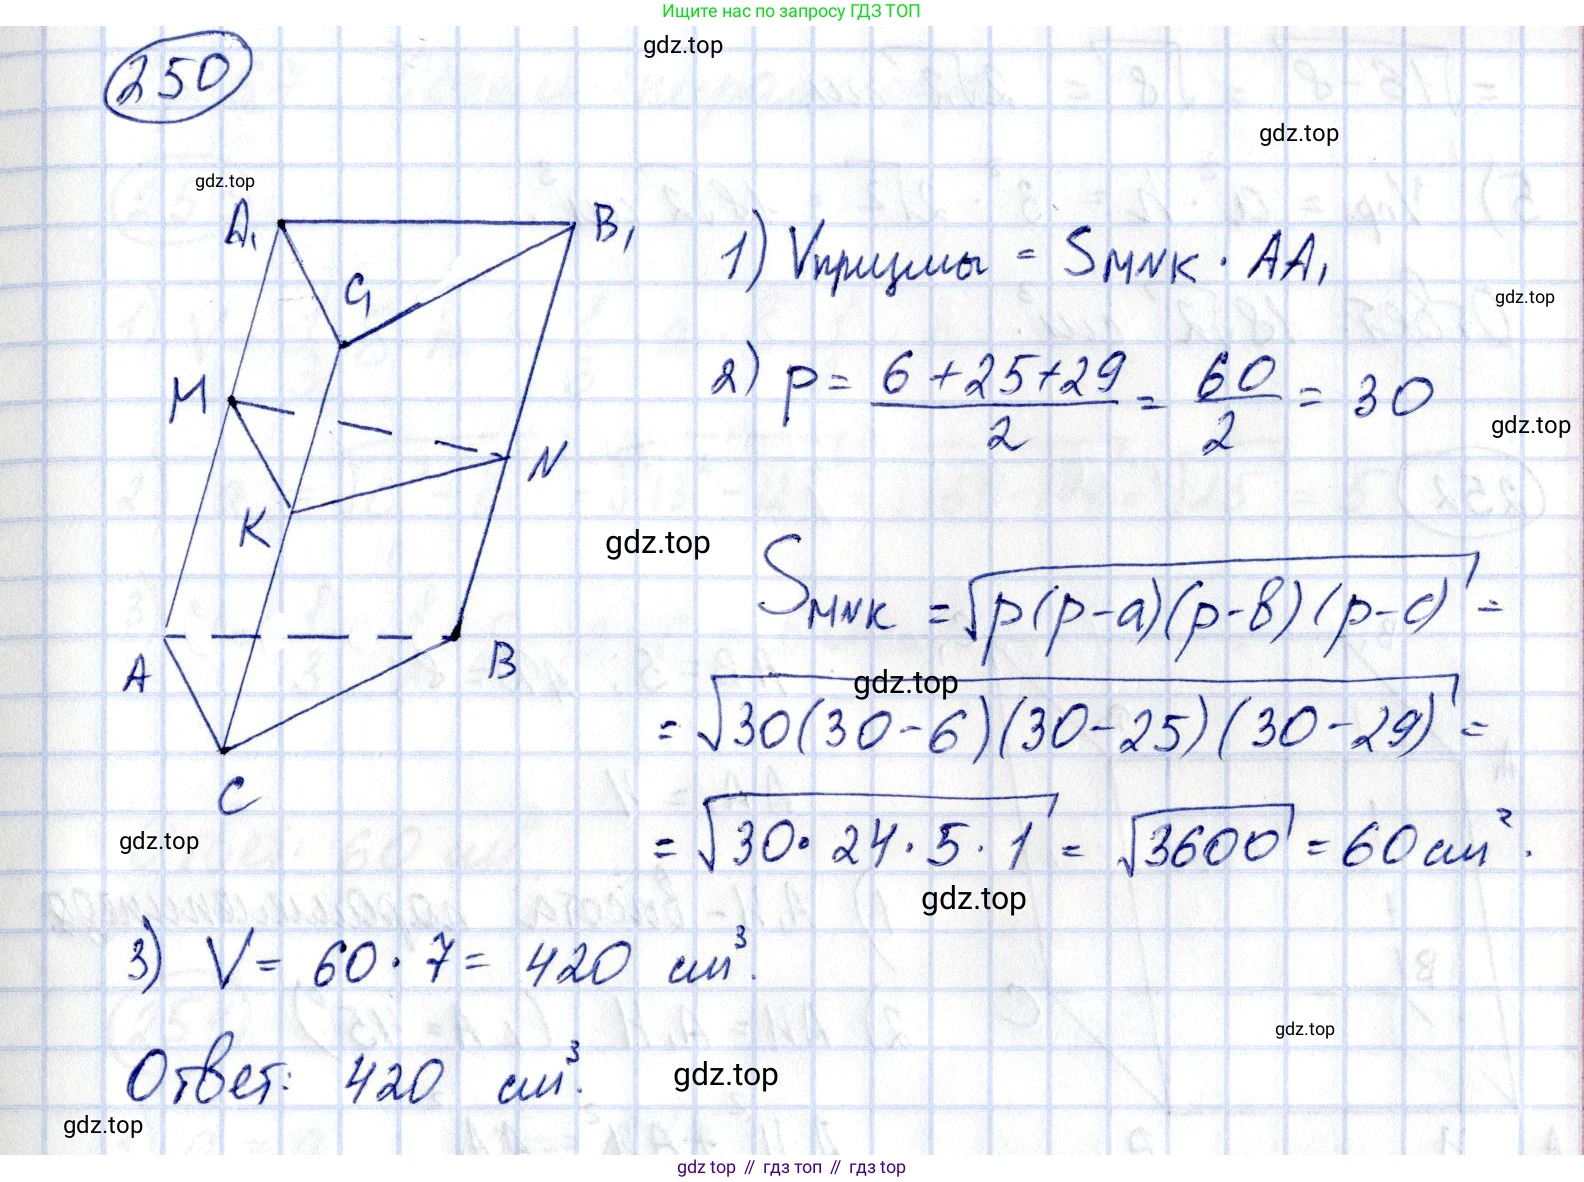 Ищите нас по запросу ГДЗ ТОП
gdz.top
250
gdz.top
gdz.top
A₁
B₁
C₁
M
N
K
A
B
C
1) Vпризмы = SMNK · AA₁
gdz.top
2) p = (6+25+29)/2 = 60/2 = 30
gdz.top
gdz.top
SMNK = √(p(p-a)(p-в)(p-c)) =
gdz.top
= √(30(30-6)(30-25)(30-29)) =
gdz.top
= √(30·24·5·1) = √3600 = 60 см².
gdz.top
3) V = 60·7 = 420 см³.
gdz.top
Ответ: 420 см³.
gdz.top
gdz.top
gdz top // гдз топ // гдз top